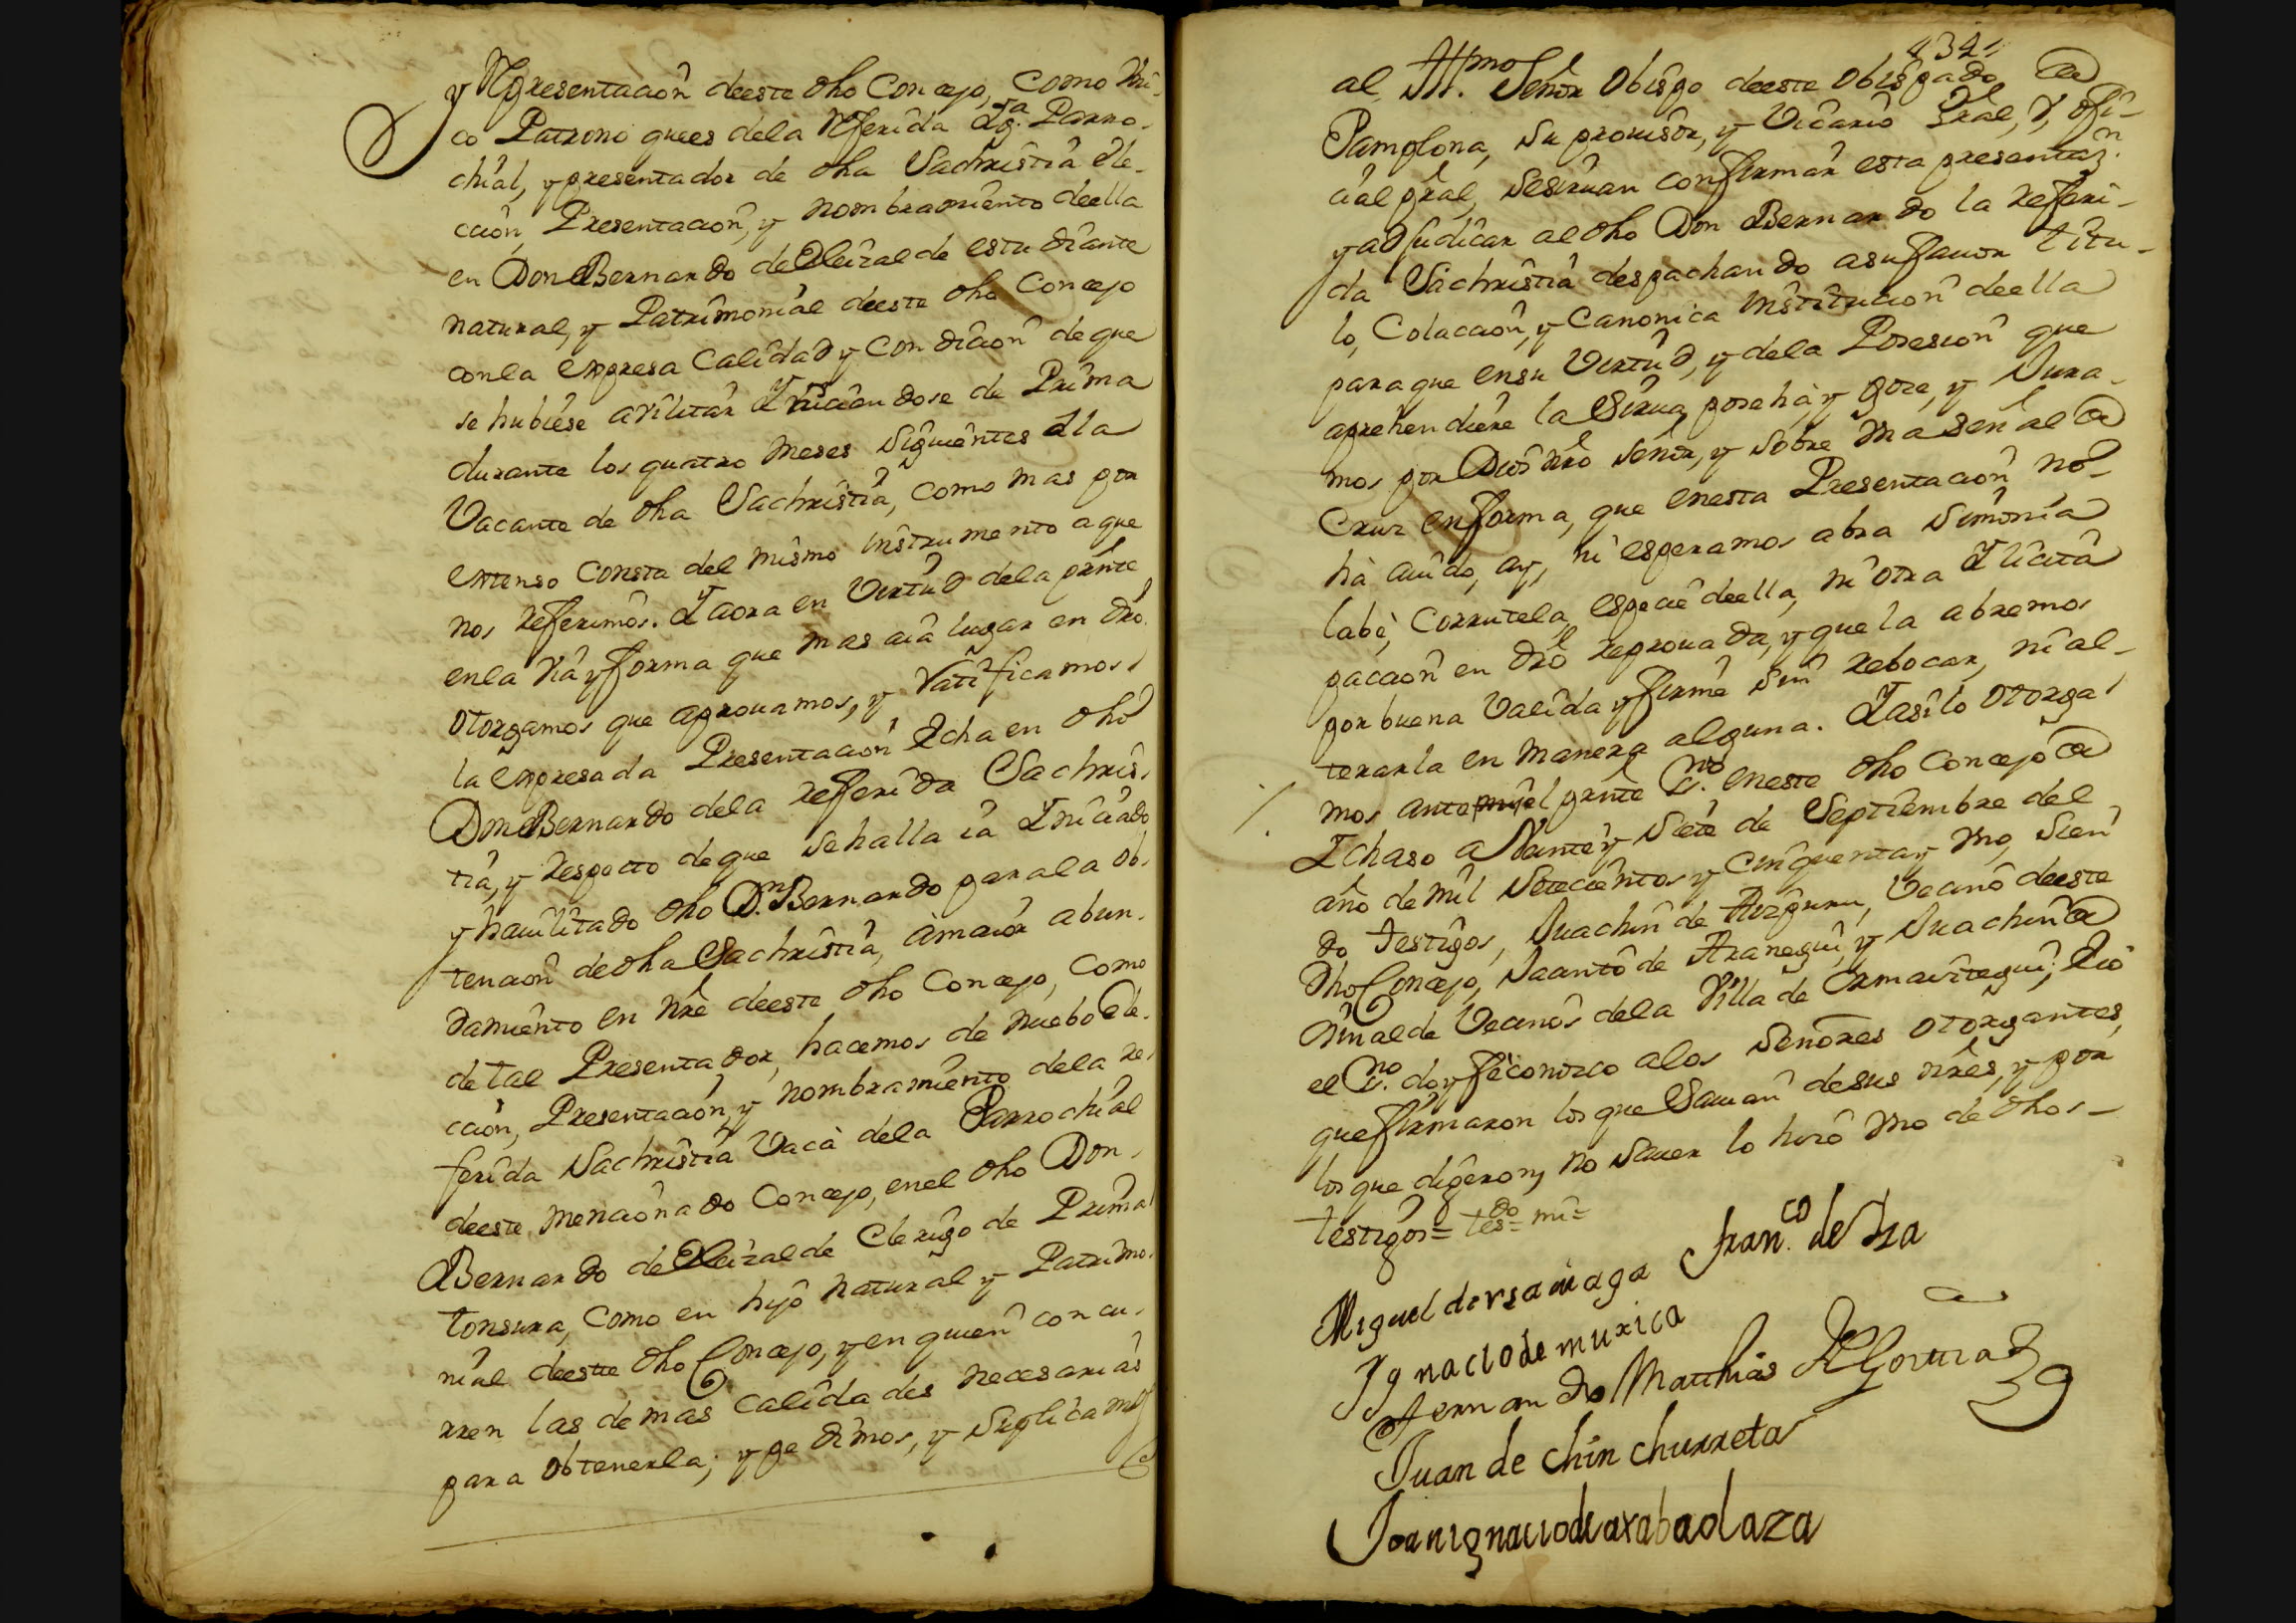 y Representacion deeste dho Concejo, como Uni-
co Patrono quees dela Referida Ygª. Parro-
chial, y presentador de dha Sachristia ele-
ccion, Presentacion, y nombramiento deella
en Don Bernardo de Eleizalde estudiante
natural, y Patrimonial deeste dho Concejo
conla expresa Calidad y condicion de que
se hubiese avilitar Yniciandose de Prima
durante los quatro meses siguientes ala
Vacante de dha Sachristia, como mas por
extenso consta del mismo instrumento aque
nos Referimos. Yaora en Virtud dela preste
enla via y forma que mas aia lugar en dro.
otorgamos que aprouamos, y Ratificamos
la expresada Presentacion Echa en dho
Don Bernardo dela referida Sachris-
tia, y respecto deque sehalla ia Yniciado
y hauilitado dho Dn. Bernardo parala ob-
tencion de dha Sachristia, à maior abun-
damiento en nre deeste dho Concejo, como
de tal Presentador, hacemos de nuebo Ele-
ccion, Presentacion, y nombramiento dela re-
ferida Sachristia Vaca dela Parrochial
deeste mencionado Concejo, enel dho Don
Bernardo de Eleizalde Clerigo de Prima
tonsura, como en hijo natural y Patrimo-
nial deeste dho Concejo, y en quien concu-
rren las demas calidades necesarias
para obtenerla; y pedimos, y suplicamos
434
al Yllmo. Señor Obispo deeste Obispado de
Pamplona, su prouisor, y Vicario Gral, y ofi-
cial pral, sesiruan confirmar esta presentazn.
y adjudicar al dho Don Bernardo la referi-
da Sachristia despachando asu fauor titu-
lo, Colacion, y Canonica institucion deella
paraque ensu Virtud, y dela Posesion que
aprehendiere la sirua, posehà y goze, y Jura-
mos por Dios nro señor, y sobre una señal de
Cruz enforma, que enesta Presentacion no
hà auido, ay, ni esperamos abra simonia
labe, corrutela, especie deella, ni otra Ylicita
pacion en dro reprouada, y que la abremos
por buena Valida y firme sin rebocar, ni al-
terarla en manera alguna. Yasilo otorga-
mos ante mi el preste Ess.no eneste dho Concejo de
Ychaso a Veinte y siete de Septiembre del
año de mil setecientos y cinquenta y uno, sien
do testigos, Juachin de Aizpuru, Vecino deeste
dho Concejo, Jacinto de Aranegui, y Juachin de
Vinalde Vecinos dela Villa de Ormaiztegui; Eio
el Ess.no doy fè conozco alos Señores otorgantes,
que firmaron los que sauian desus nres, y por
los que digeron, no sauer lo hizo uno de dhos
testigos = tesdo = mi =
Miguel de Ysasiaga Franco. de Ysa
Ygnacio de muxica
Fernando Matthias de Gorrira
Juan de chinchurreta
Joan ignacio de arabaolaza